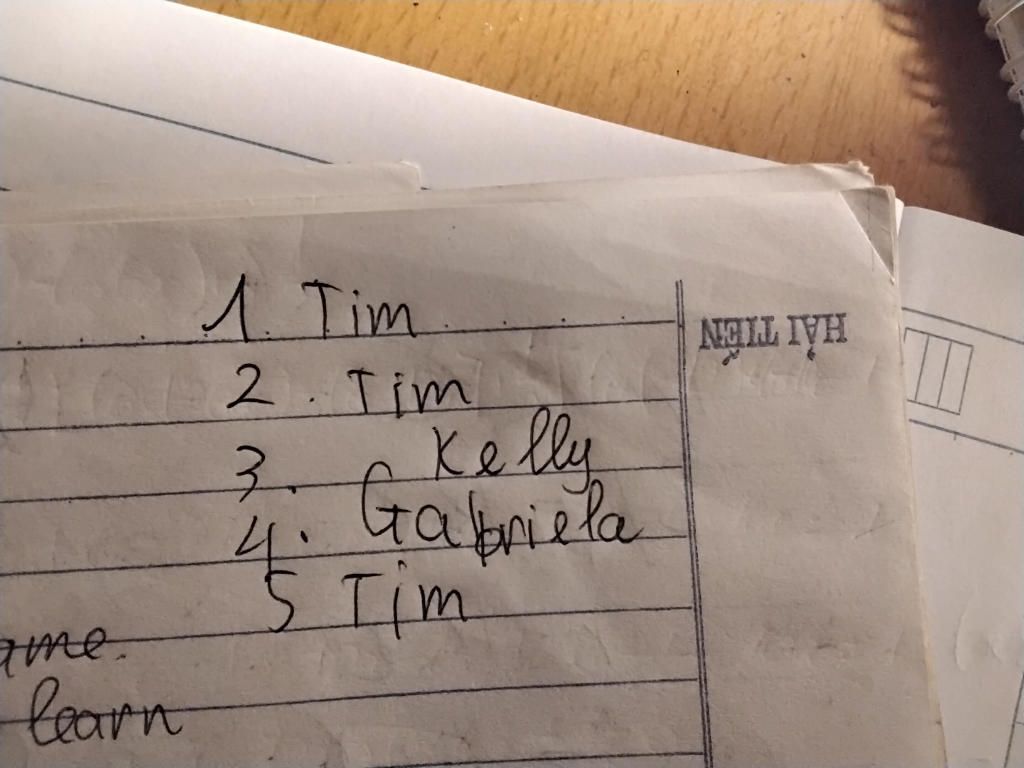 1. Tim
2. Tim
3. Kelly
4. Gabriela
5 Tim
ame.
learn
HẢI TIẾN